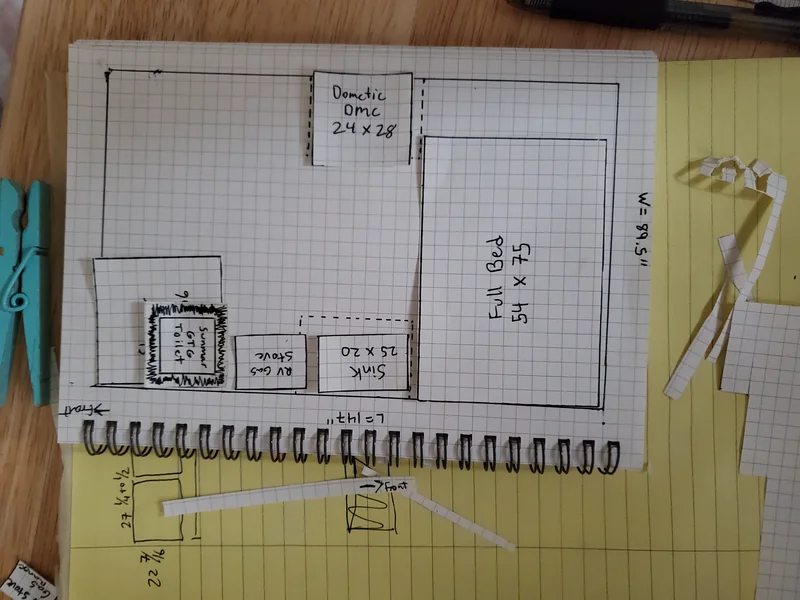 Dometic
DMC
24 x 28
W = 89.5"
Full Bed
54 x 75
Summer
GTG
Toilet
RV Gas
Stove
Sink
25 x 20
L = 147"
Front
Front
27 1/4 + 0 1/2
22 7/16
Stove